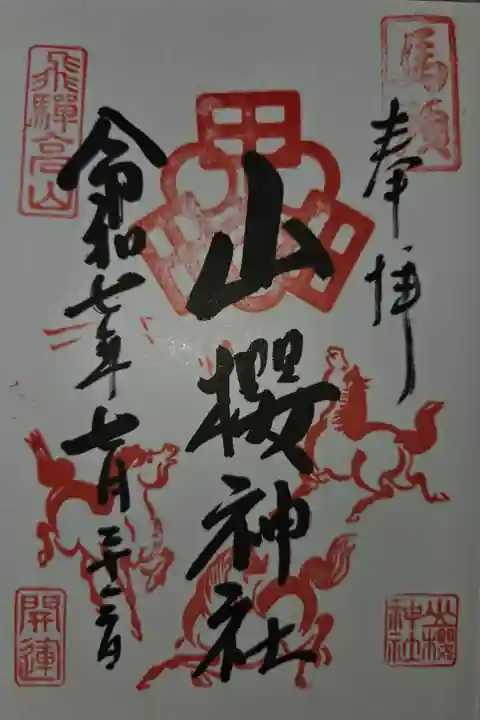 馬頭
奉拝
山櫻神社
山櫻神社
令和七年七月
飛驒高山
開運